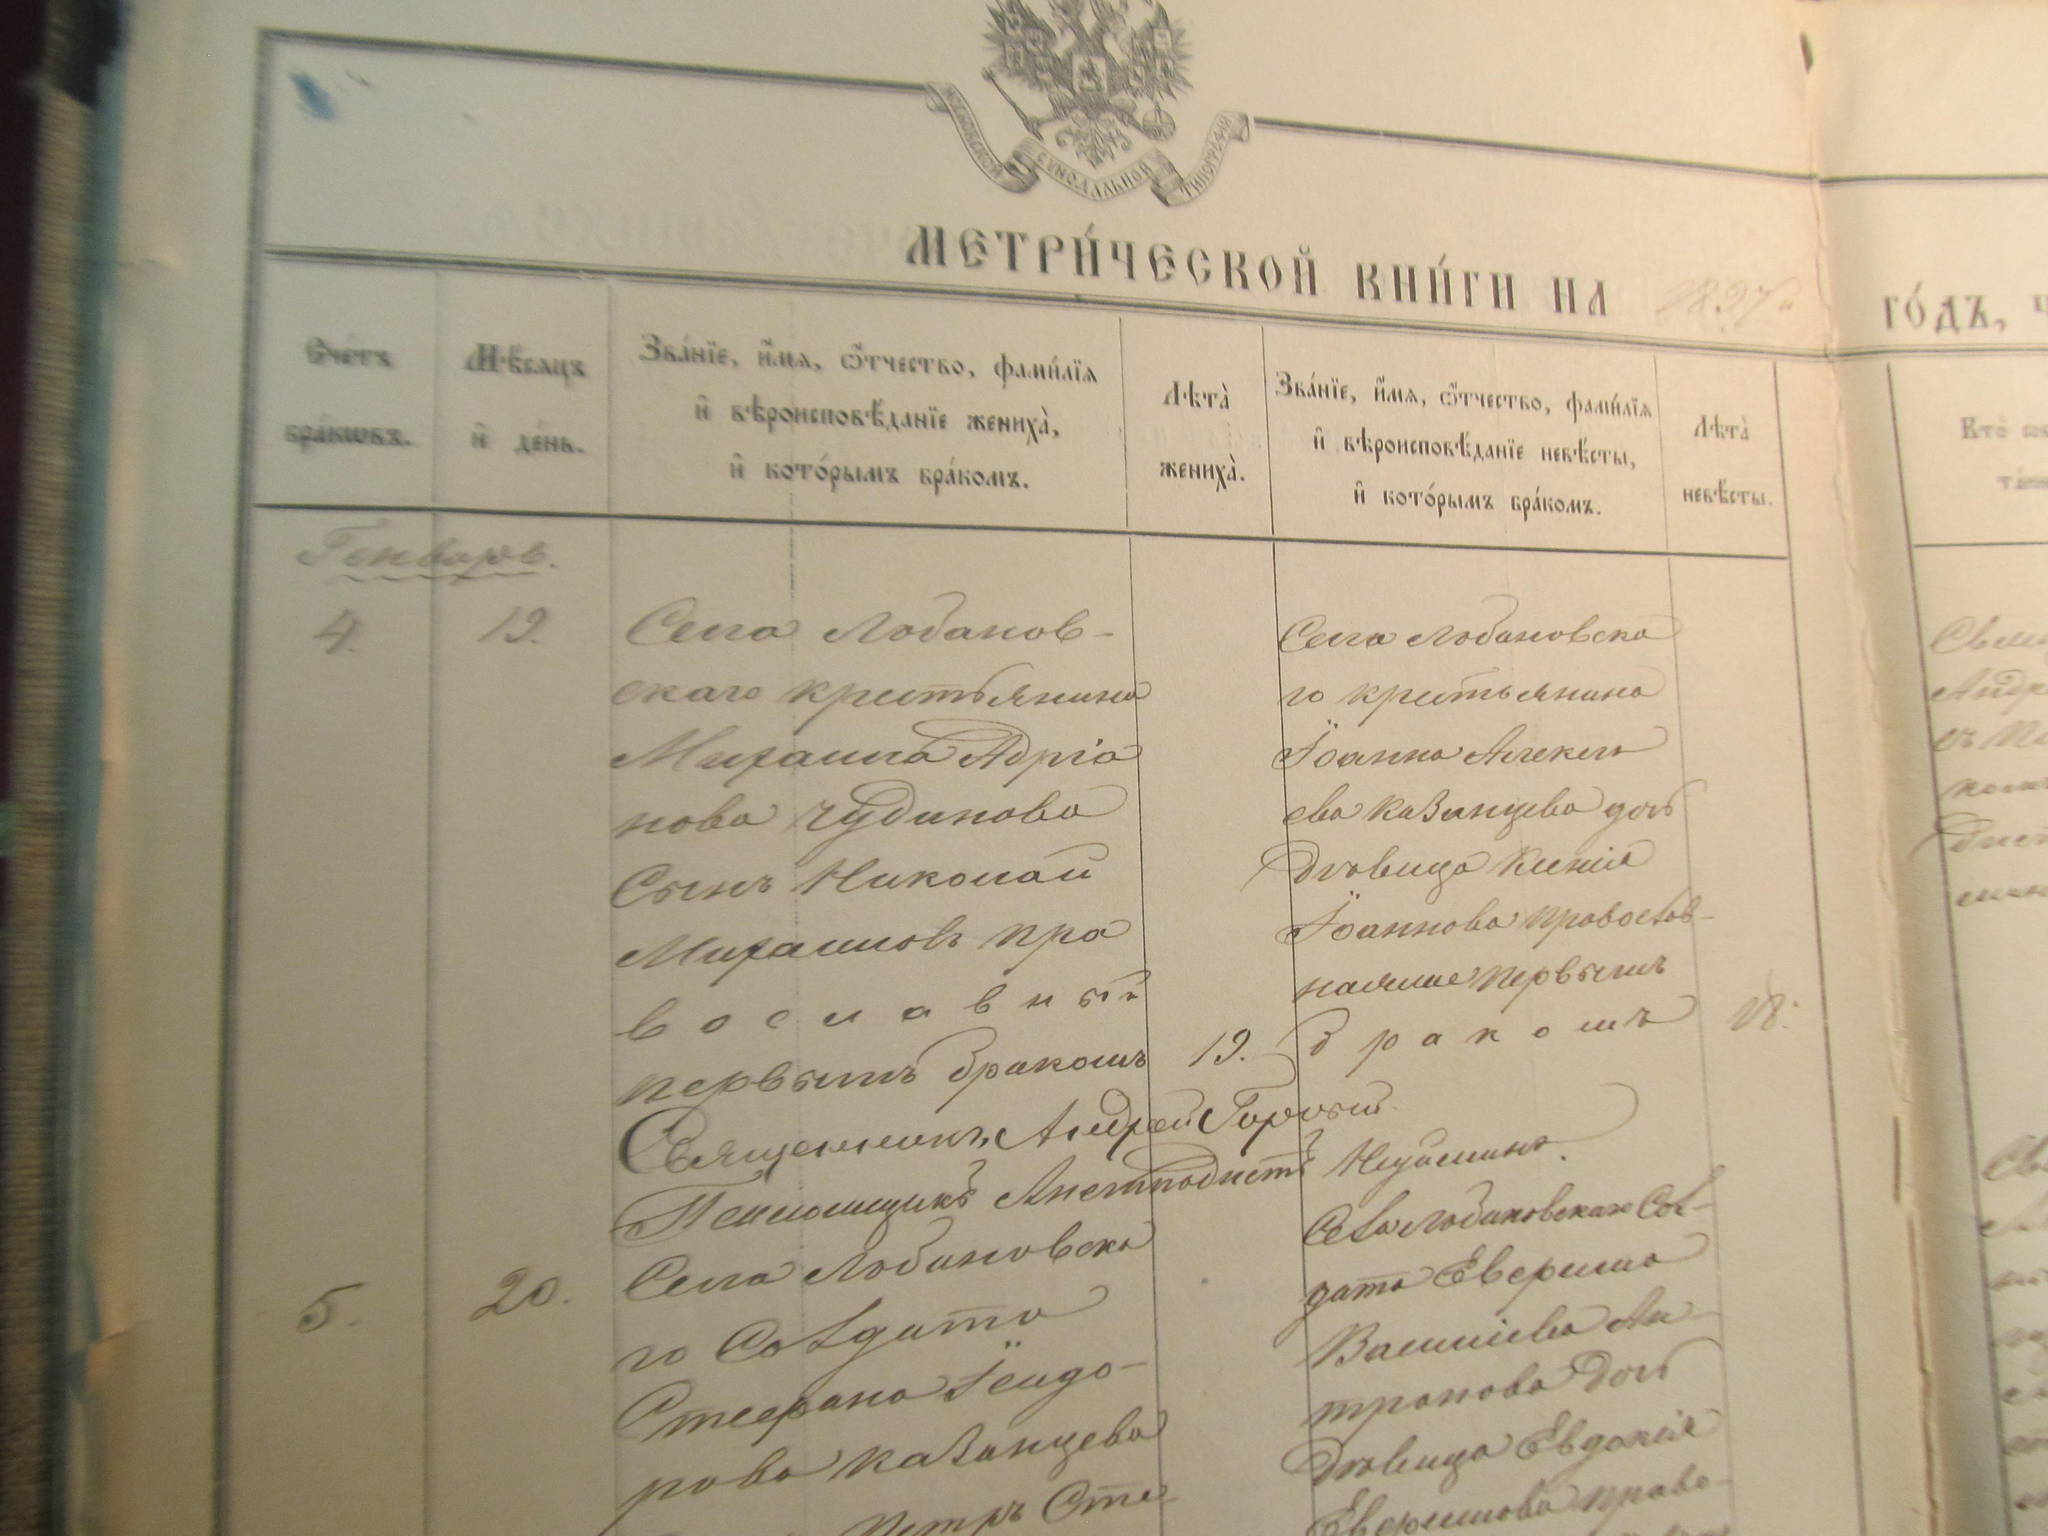 МОСКОВСКОЙ СѴНОДАЛЬНОЙ ТИПОГРАФІИ
МЕТРИ́ЧЕСКОЙ КНИ́ГИ НА 1897 ГО́ДЪ,
Сче́тъ бра́кѡвъ.
Мѣ́сяцъ и҆ де́нь.
Зва́нїе, и҆́мѧ, ѻ҆́тчество, фами́лїѧ
и҆ вѣроисповѣ́данїе жениха̀,
и҆ кото́рымъ бра́комъ.
Лѣта̀
жениха̀.
Зва́нїе, и҆́мѧ, ѻ҆́тчество, фами́лїѧ
и҆ вѣроисповѣ́данїе невѣ́сты,
и҆ кото́рымъ бра́комъ.
Лѣта̀
невѣ́сты.
Генварь.
4. 19.
Села Лобанов-
скаго крестьянина
Михаила Адріа
нова Чудинова
Сынъ Николай
Михаиловъ пра
вославный
первымъ бракомъ
19.
Села Лобановска
го крестьянина
Іоанна Алексѣ
ева Казанцева дочь
Дѣвица Ксенія
Іоаннова православ-
ная первымъ
бракомъ
18.
Священникъ Андрей
5. 20.
Села Лобановска
го Солдата
Стефана Ісидо-
рова Казанцева
Петръ Сте
Села Лобановскаго Сол-
дата Еверима
Василіева Ан-
тропова Дочь
Дѣвица Евдокія
Еверимова право-